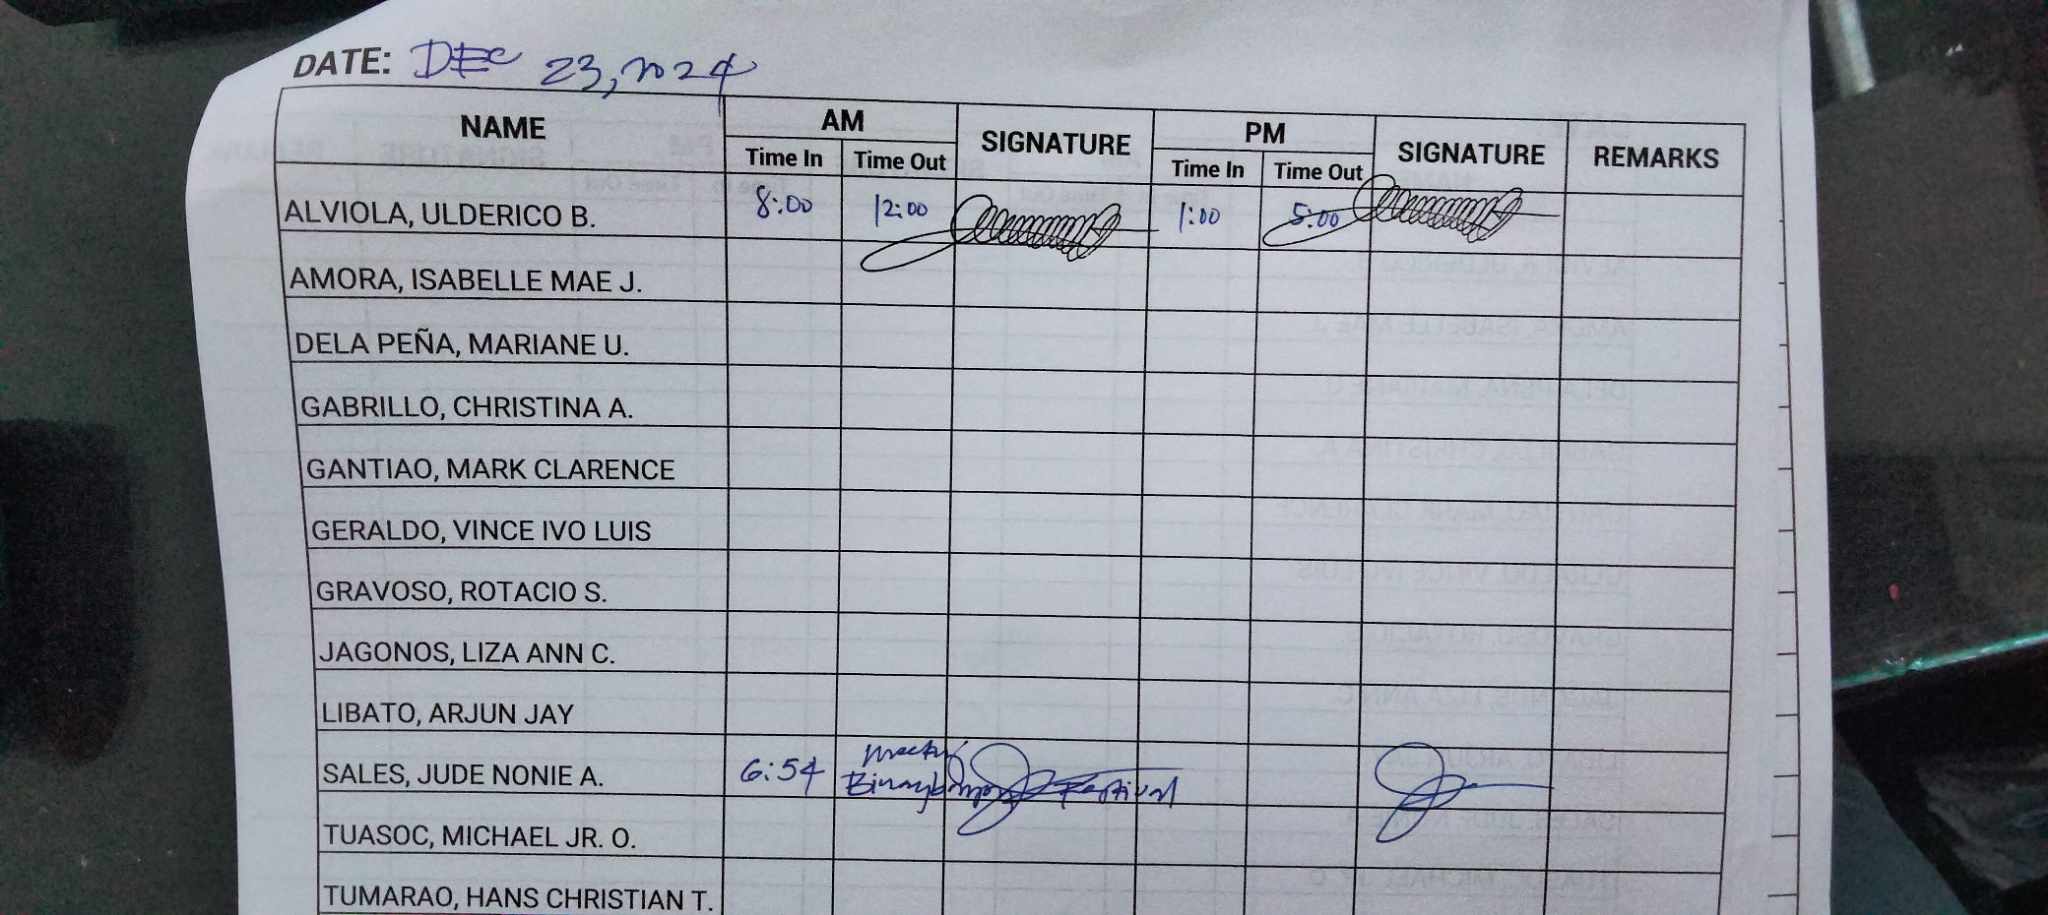 DATE: DEC 23, 2024
NAME AM SIGNATURE PM SIGNATURE REMARKS
Time In Time Out Time In Time Out
ALVIOLA, ULDERICO B. 8:00 12:00 1:00 5:00
AMORA, ISABELLE MAE J.
DELA PEÑA, MARIANE U.
GABRILLO, CHRISTINA A.
GANTIAO, MARK CLARENCE
GERALDO, VINCE IVO LUIS
GRAVOSO, ROTACIO S.
JAGONOS, LIZA ANN C.
LIBATO, ARJUN JAY
SALES, JUDE NONIE A. 6:54 Festival
TUASOC, MICHAEL JR. O.
TUMARAO, HANS CHRISTIAN T.